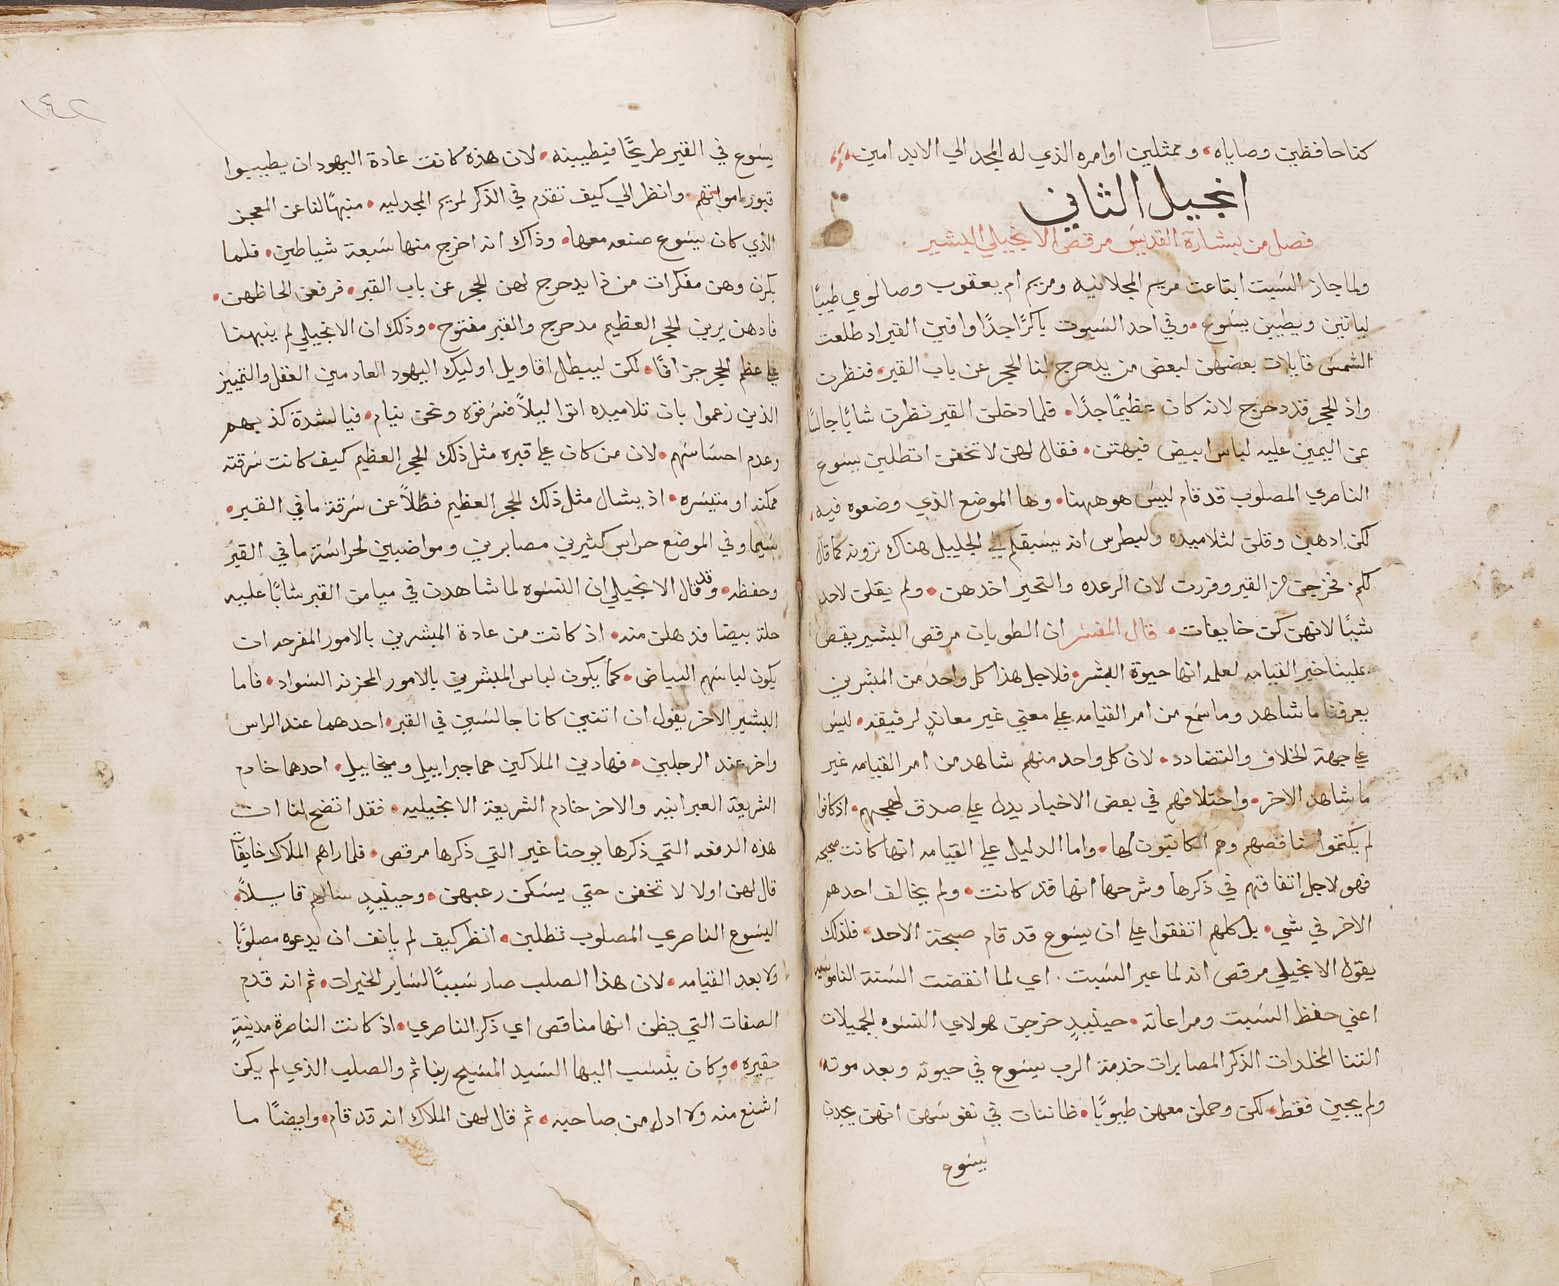 كنا حافظين وصاياه. وممثلين اوامره الذي له المجد الي الابد امين.
انجيل الثاني
فصل من بشارة القديس مرقص الانجيلي البشير
ولما جاز السبت ابتاعت مريم المجدلانيه ومريم ام يعقوب وصالومي طيبًا
لياتين ويطيبن يسوع. وفي احد السبوت باكرًا جدًا وافين القبر اد طلعت
الشمس قايلات بعضهن لبعض من يدحرج لنا الحجر عن باب القبر. فنظرت
واذ الحجر قد دحرج لانه كان عظيمًا جدًا. فلما دخلن القبر نظرن شابًا جالسًا
عن اليمين عليه لباس ابيض فبهتن. فقال لهن لا تخفن اتطلبن يسوع
الناصري المصلوب قد قام ليس هو ههنا. وها الموضع الذي وضعوه فيه.
لكن ادهبن وقلن لتلاميده ولبطرس انه يسبقكم الي الجليل هناك ترونه كما قال
لكم. فخرجن من القبر وفررت لان الرعده والتحير اخدهن. ولم يقلن لاحد
شيئًا لانهن كن خايفات. قال المفسر ان الطوبان مرقص البشير يقص
علينا خبر القيامه لعلمه انها حيوة البشر. فلاجل هذا كل واحد من المبشرين
يعرفنا ما شاهد وما سمع من امر القيامه علي معني غير معاند لرفيقه. ليس
علي جهة الخلاف والتضادد. لان كل واحد منهم شاهد من امر القيامه غير
ما شاهد الاخر. واختلافهم في بعض الاخبار يدل علي صدق لهجتهم. اذ كانوا
لم يكتموا تناقضهم وهم الكاتبون لها. واما الدليل علي القيامه انها كانت صحيحه
فهو لاجل اتفاقهم في ذكرها وشرحها انها قد كانت. ولم يخالف احدهم
الاخر في شي. بل كلهم اتفقوا علي ان يسوع قد قام صبحة الاحد. فلذلك
يقول الانجيلي مرقص انه لما عبر السبت. اي لما انقضت السنة الناموسيه
اعني حفظ السبت ومراعاته. حينيدٍ خرجن هولاي النسوه الجميلات
الثنا المخلدات الذكر المصابرات خدمة الرب يسوع في حيوته وبعد موته.
ولم يجين فقط. لكن وحملن معهن طيوبًا. ظانات في نفوسهن انهن يجدن
يسوع
١٤٢
يسوع في القبر طريحًا فيطيبنه. لان هذه كانت عادة اليهود ان يطيبوا
قبور امواتهم. وانظر الي كيف تقدم في الذكر لمريم المجدليه. منبهًا لنا عن المعجز
الذي كان يسوع صنعه معها. وذاك انه اخرج منها سبعة شياطين. فلما
بكرن وهن مفكرات من ذا يدحرج لهن الحجر عن باب القبر. فرفعن الحاظهن.
فادهن يرين الحجر العظيم مدحرج والقبر مفتوح. وذلك ان الانجيلي لم ينبهنا
علي عظم الحجر جزافًا. لكن ليبطل اقاويل اوليك اليهود العادمين العقل والتمييز
الذين زعموا بان تلاميده اتوا ليلاً فسرقوه ونحن نيام. فيا لشدة كذبهم
وعدم احساسهم. لان من كان علي قبره مثل ذلك الحجر العظيم كيف كانت سرقته
ممكنه او متيسره. اذ يشال مثل ذلك الحجر العظيم فضلاً عن سرقة ما في القبر.
سيما وفي الموضع حراس كثيرين مصابرين ومواضبين لحراسة ما في القبر
وحفظه. وقد قال الانجيلي ان النسوه لما شاهدن في ميامن القبر شابًا عليه
حلة بيضا فدهلن منه. اذ كانت من عادة المبشرين بالامور المفرحه ان
يكون لباسهم البياض. كما يكون لباس المبشرين بالامور المحزنه السواد. فاما
البشير الاخر يقول ان اتنين كانا جالسين في القبر. احدهما عند الراس
واخر عند الرجلين. فهادين الملاكين هما جبراييل وميخاييل. احدهما خادم
الشريعة العبرانيه والاخر خادم الشريعة الانجيليه. فقد اتضح لنا ان
هذه الدفعه التي ذكرها يوحنا غير التي ذكرها مرقص. فلما راهم الملاك خايفات
قال لهن اولا لا تخفن حتي يسكن رعبهن. وحينيدٍ سالهم قايلاً.
اليسوع الناصري المصلوب تطلبن. انظر كيف لم يانف ان يدعوه مصلوبًا
ولا بعد القيامه. لان هذا الصلب صار سببًا لساير الخيرات. ثم انه قدم
الصفات التي يظن انها مناقص اي ذكر الناصري. اذ كانت الناصرة مدينةٍ
حقيره. وكان ينسب اليها السيد المسيح ربنا ثم والصلب الذي لم يكن
اشنع منه ولا ادل من صاحبه. ثم قال لهن الملاك انه قد قام. وايضًا ما